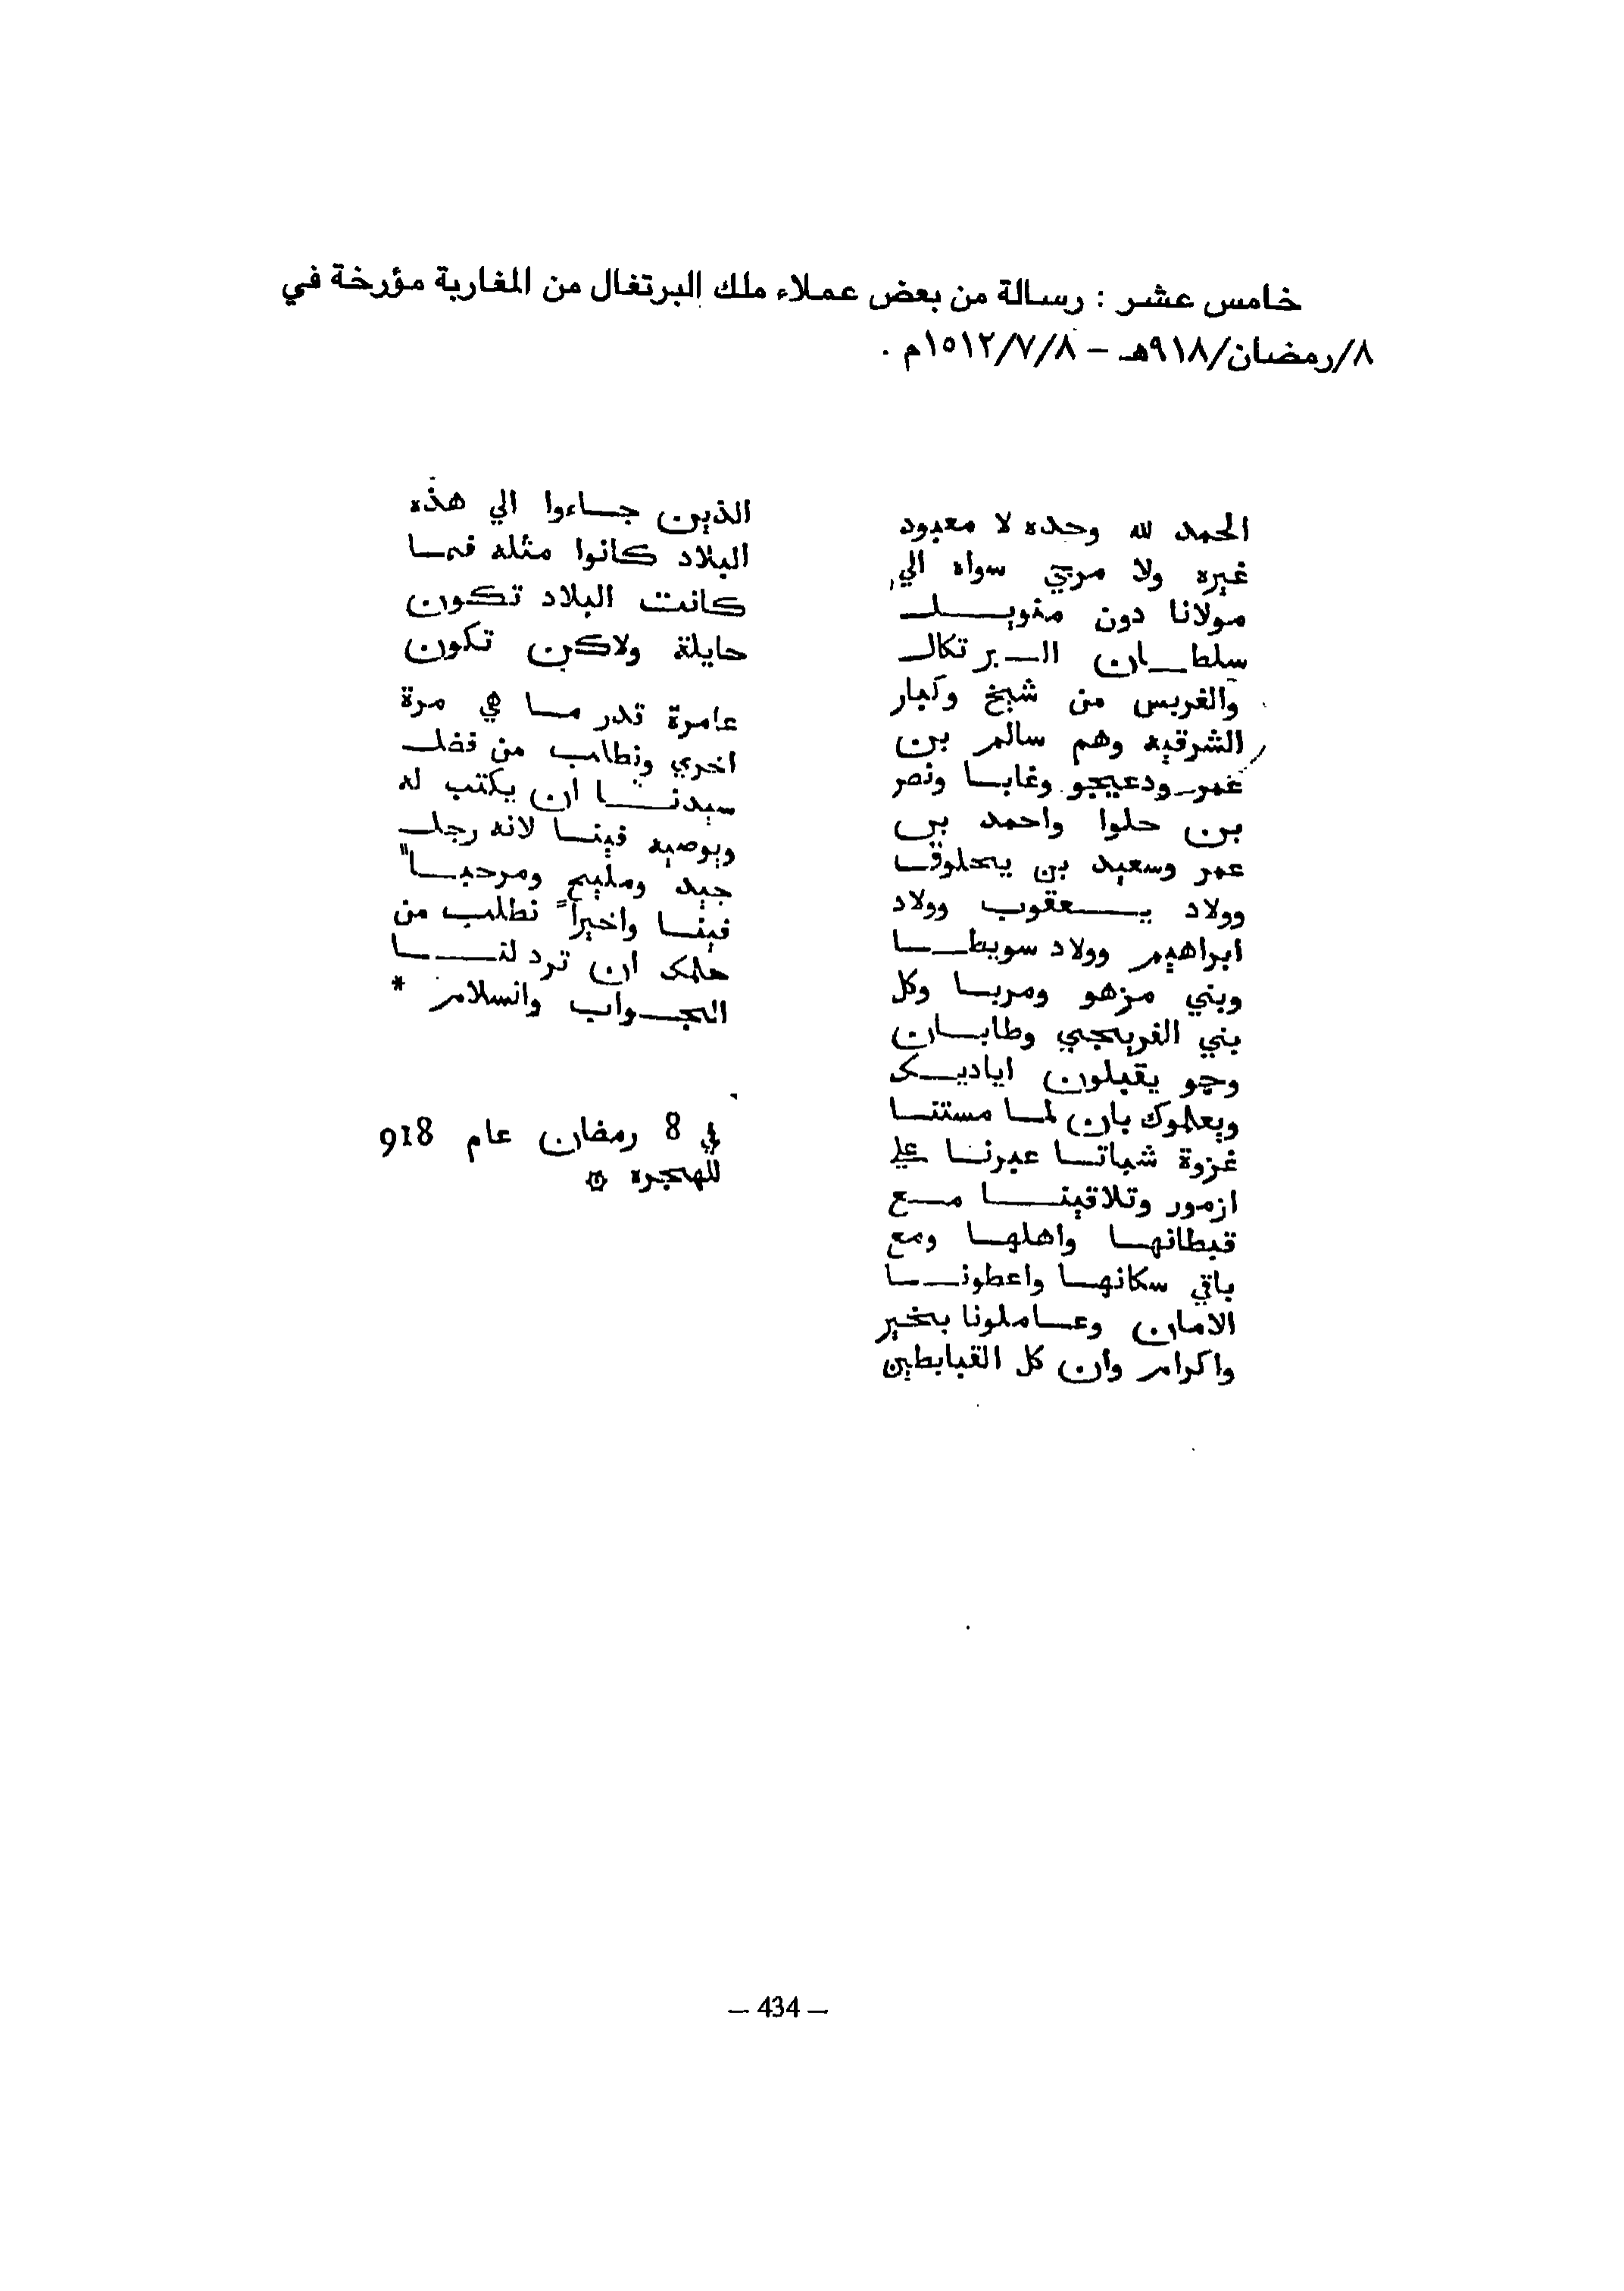 خامس عشر : رسالة من بعض عملاء ملك البرتغال من المغاربة مؤرخة في
٨/رمضان/٩١٨هـ – ١٥١٢/٧/٨م .
الحمد لله وحده لا معبود
غيره ولا مرجي سواه الي
مولانا دون منويل
سلطان البرتكال
والغربس من شيخ وكبار
الشرقيه وهم سالم بن
عمر ودعيجو وغابا ونصر
بن حلوا واحمد بن
عمر وسعيد بن يخلوفا
وولاد يعقوب وولاد
ابراهيم وولاد سويطا
وبني مزهو ومربا وكل
بني الفريجي وطابان
وجو يقبلون اياديك
ويعلموك بان لما مستنا
غزوة شباتا عبرنا علي
ازمور وتلاقينا مع
قبطانها واهلها ومع
باقي سكانها واعطونا
الامان وعاملونا بخير
واكرام وان كل القبابطين
الذين جاءوا الي هذه
البلاد كانوا مثله فما
كانت البلاد تكون
حايلة ولاكن تكون
عامرة قدر ما هي مرة
اخري ونطلب من فضل
سيدنا ان يكتب له
ويوصيه فينا لانه رجل
جيد ومليح ومرحبا"
فينا واخيرا" نطلب من
حلمك ان ترد لنا
الجواب والسلام *
في 8 رمضان عام 918
للهجره ۞
– 434 –